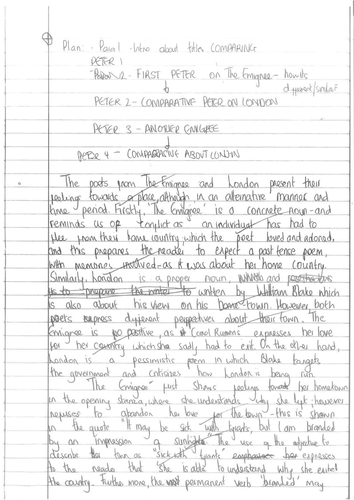 Plan: · Para 1 - Intro about titles COMPARING
PETER 1
PETER 2 - FIRST PETER on The Emigree - how is
different/similar?
PETER 2 - COMPARATIVE PETER ON LONDON
PETER 3 - ANOTHER EMIGREE
PETER 4 - COMPARATIVE ABOUT LONDON
The poets from The Emigree and London present their
feelings towards a place, although in an alternative manner and
time period. Firstly, 'The Emigree' is a concrete noun - and
reminds us of conflict as an individual has had to
flee from their home country, which the poet loved and adored,
and this prepares the reader to expect a past tense poem,
with memories involved - as it was about her home country.
Similarly, London is a proper noun, and
is to prepare the reader to written by William Blake which
is also about his view on his home town. However, both
poets express different perspectives about their town. The
Emigree is so positive, as Carol Rumens expresses her love
for her country which she sadly had to exit. On the other hand,
London is a pessimistic poem in which Blake targets
the government and critisises how London is being run.
"The Emigree" just shows feelings toward her hometown
in the opening stanza, where she understands why she left, however
refuses to abandon her love for the town - this is shown
in the quote "It may be sick with tyrants, but I am branded
by an impression of sunlight." The use of the adjective to
describe the town as "sick with tyrants" emphasises her expresses
to the reader that she is able to understand why she exited
the country. Further more, the permanent verb 'branded' may